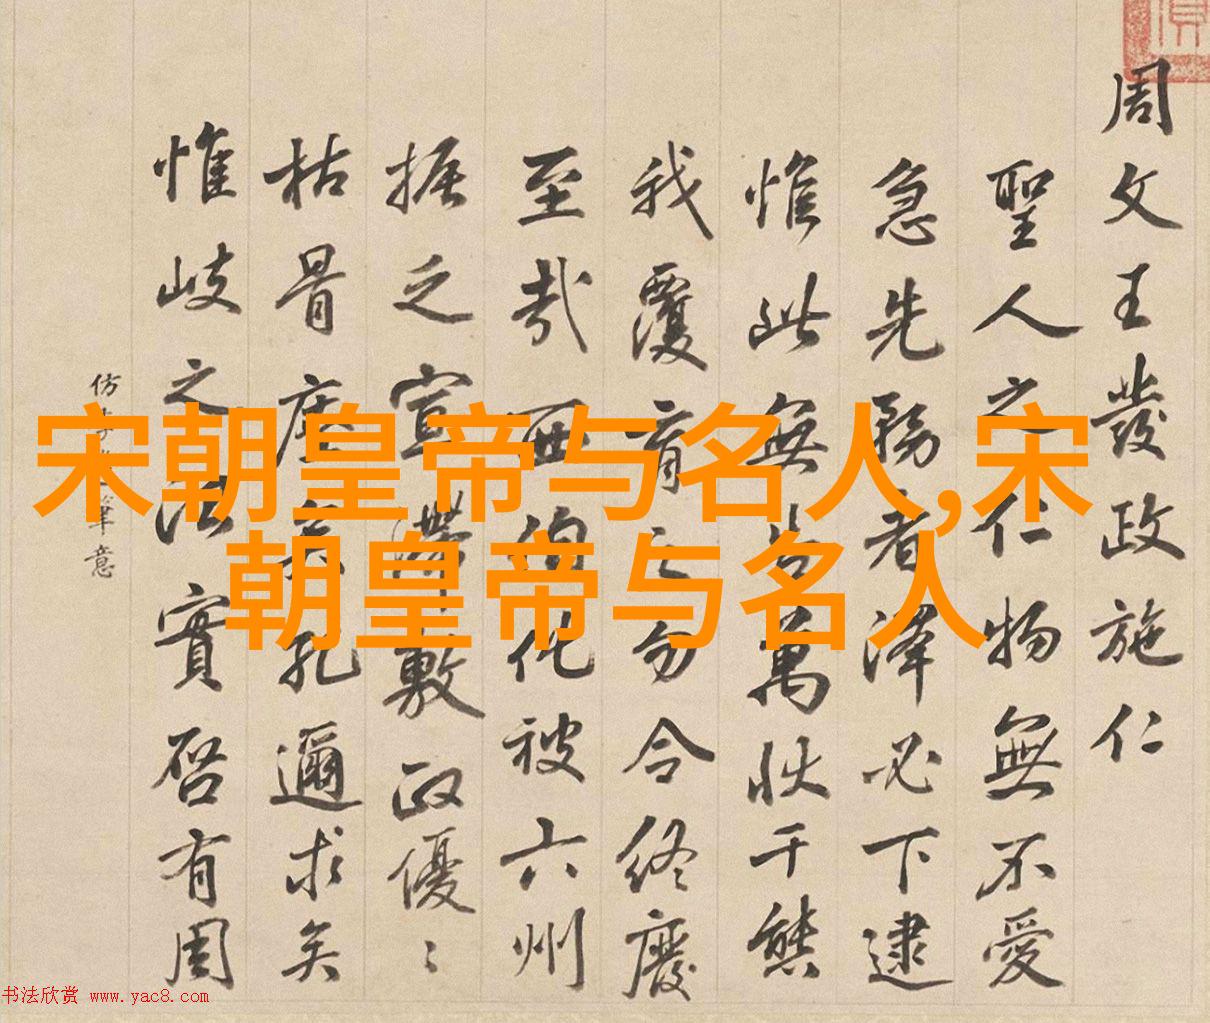 周文王發政施仁
聖人之仁物無不愛
急先務者澤必下逮
惟此無告萬狀千態
我覆育之勿令終廢
至哉西伯化被六州
振之宣滯敷政優〻
枯骨孔邇求矣
惟岐之治實啓有周
仿筆意
宋朝皇帝与名人,宋
朝皇帝与名人
书法欣赏 www.yac8.com